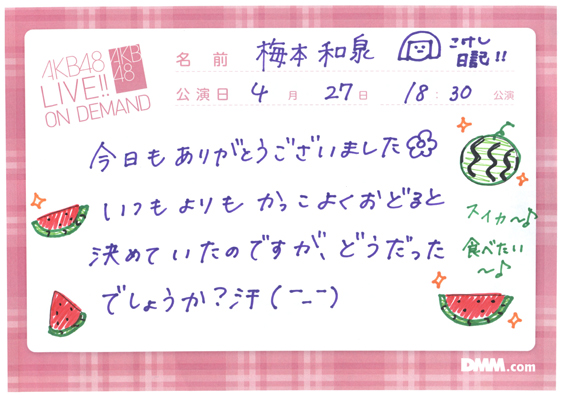 AKB48
LIVE!!
ON DEMAND
AKB
48
名前 梅本和泉
こけし
日記!!
公演日 4月27日 18:30 公演
今日もありがとうございました
いつもよりもかっこよくおどると
決めていたのですが、どうだった
でしょうか?汗(ー_ー)
スイカ〜♪
食べたい
〜♪
DMM.com